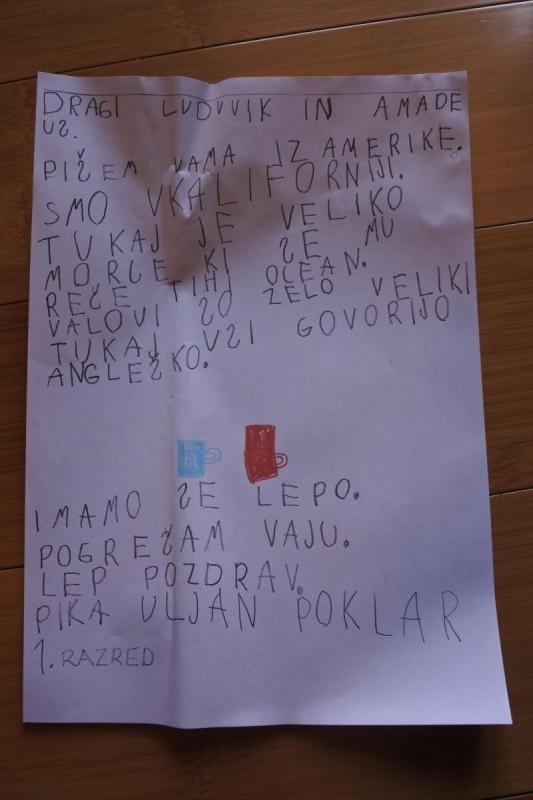 DRAGI LUDVVIK IN AMADE
US.
PIŠEM VAMA IZ AMERIKE.
SMO VKALIFORNIJI.
TUKAJ JE VELIKO
MORGE KI SE MU
REČE TIHI OCEAN.
VALOVI SO ZELO VELIKI
TUKAJ VSI GOVORIJO
ANGLEŠKO.
IMAMO SE LEPO.
POGREŠAM VAJU.
LEP POZDRAV.
PIKA ULJAN POKLAR
1. RAZRED